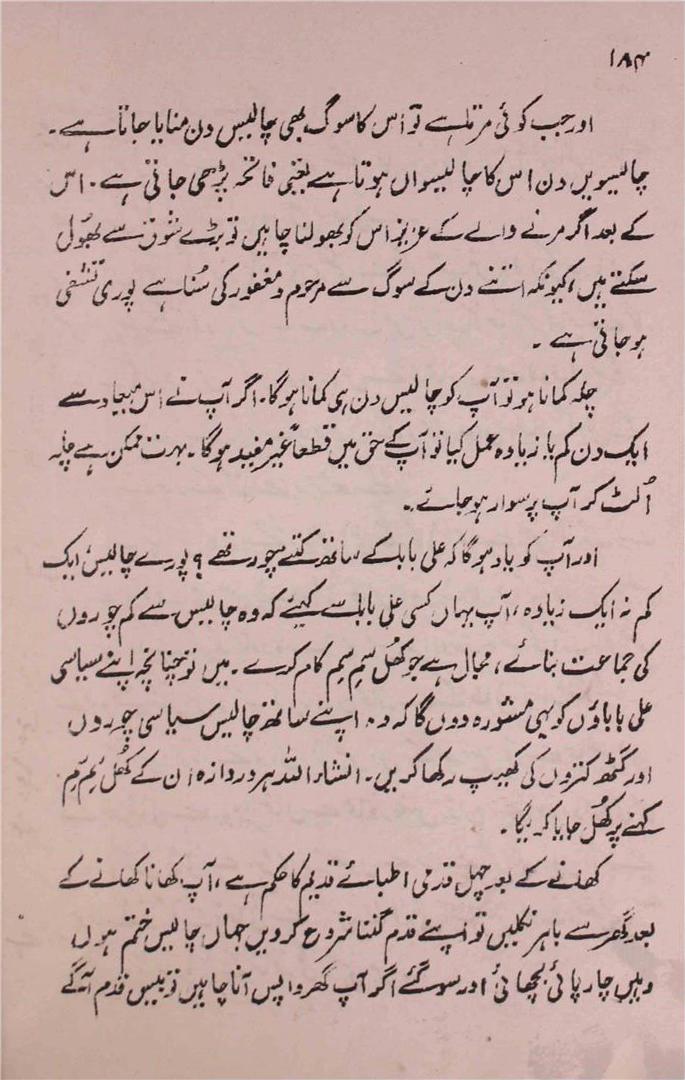 ۱۸۴
اور جب کوئی مرتا ہے تو اُس کا سوگ بھی چالیس دن منایا جاتا ہے۔
چالیسویں دن اس کا چالیسواں ہوتا ہے یعنی فاتحہ پڑھی جاتی ہے۔ اس
کے بعد اگر مرنے والے کے عزیز اس کو بھولنا چاہیں تو بڑے شوق سے بھول
سکتے ہیں، کیونکہ اتنے دن کے سوگ سے مرحوم و مغفور کی سُنا ہے پوری تشفی
ہو جاتی ہے۔
چلہ کمانا ہو تو آپ کو چالیس دن ہی کمانا ہوگا۔ اگر آپ نے اس میعاد سے
ایک دن کم یا زیادہ عمل کیا تو آپ کے حق میں قطعاً غیر مفید ہوگا۔ بہت ممکن ہے چلہ
اُلٹ کر آپ پر سوار ہو جائے۔
اور آپ کو یاد ہوگا کہ علی بابا کے ساتھ کتنے چور تھے؟ پورے چالیس، ایک
کم نہ ایک زیادہ، آپ یہاں کسی علی بابا سے کہیئے کہ وہ چالیس سے کم چوروں
کی جماعت بنائے، مجال ہے جو کھُل سِم سِم کام کرے۔ میں تو چنانچہ اپنے سیاسی
علی باباؤں کو یہی مشورہ دوں گا کہ وہ اپنے ساتھ چالیس سیاسی چوروں
اور گٹھ کتروں کی کھیپ رکھا کریں۔ انشاء اللہ ہر دروازہ ان کے کھُل سِم سِم
کہنے پر کھُل جایا کریگا۔
کھانے کے بعد چہل قدمی اطبائے قدیم کا حکم ہے، آپ کھانا کھانے کے
بعد گھر سے باہر نکلیں تو اپنے قدم گننا شروع کر دیں جہاں چالیس ختم ہوں
وہیں چارپائی بچھائی اور سو گئے اگر آپ گھر واپس آنا چاہیں تو بیس قدم آگے